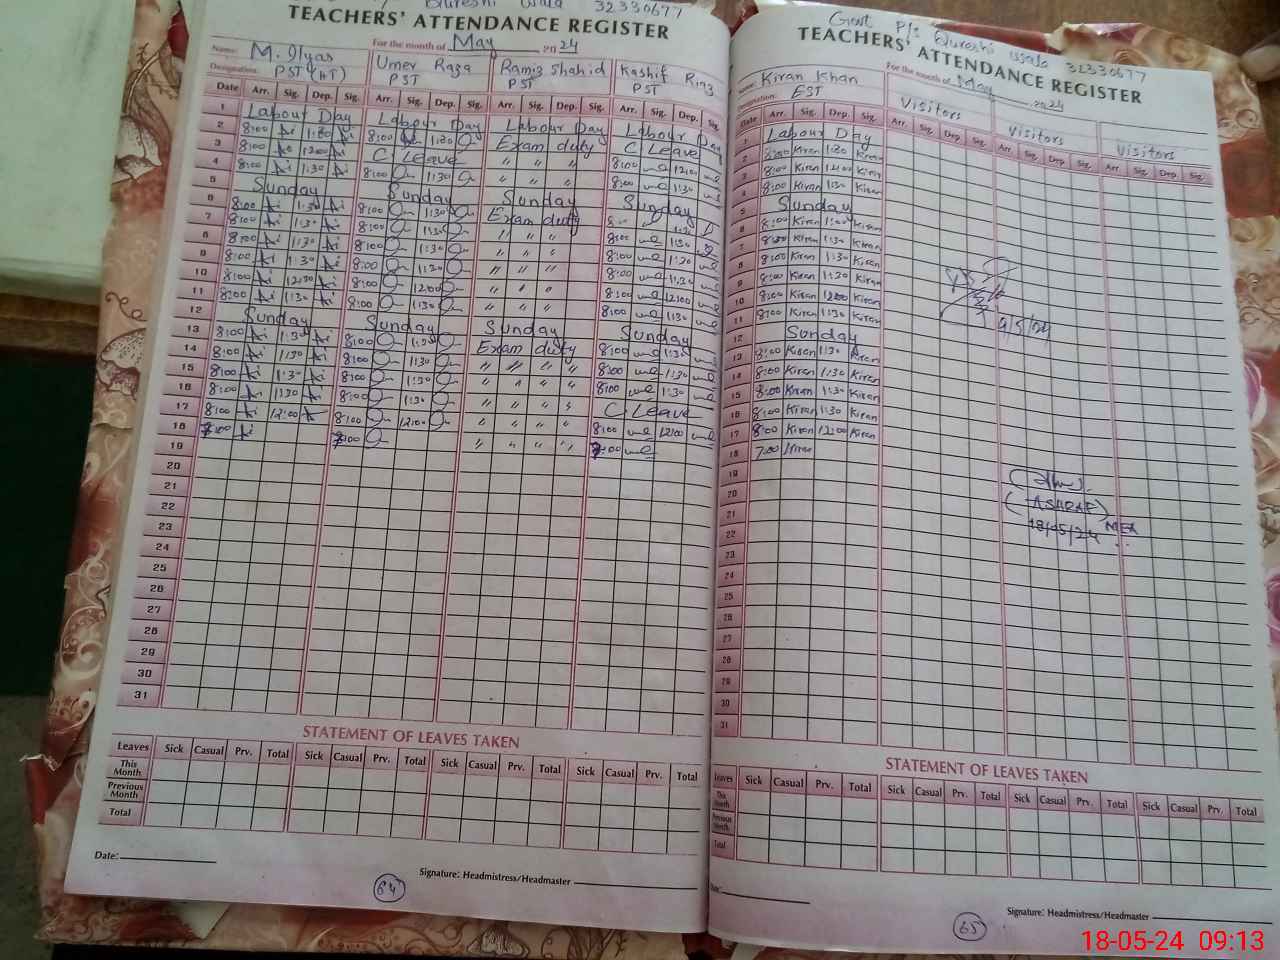 Qureshi wala 32330677
TEACHERS' ATTENDANCE REGISTER
Name: M. Ilyas For the month of May 2024
Designation: PST (HT) Umer Raza PST Ramiz Shahid PST Kashif Riaz PST
Date Arr. Sig. Dep. Sig. Arr. Sig. Dep. Sig. Arr. Sig. Dep. Sig. Arr. Sig. Dep. Sig.
1 Labour Day Labour Day Labour Day Labour Day
2 8:00 1:30 8:00 1:30 Exam duty C Leave
3 8:00 12:00 C Leave " " " 8:00 12:00
4 8:00 1:30 8:00 1:30 " " " 8:00 1:30
5 Sunday Sunday Sunday Sunday
6 8:00 1:30 8:00 1:30 Exam duty
7 8:00 1:30 8:00 1:30 " " " 8:00 1:30
8 8:00 1:30 8:00 1:30 " " " 8:00 1:30
9 8:00 1:30 8:00 1:30 " " " 8:00 1:30
10 8:00 12:00 8:00 12:00 " " " 8:00 12:00
11 8:00 1:30 8:00 1:30 " " " 8:00 1:30
12 Sunday Sunday Sunday Sunday
13 8:00 1:30 8:00 1:30 Exam duty 8:00 1:30
14 8:00 1:30 8:00 1:30 " " " " 8:00 1:30
15 8:00 1:30 8:00 1:30 " " " " 8:00 1:30
16 8:00 1:30 8:00 1:30 " " " " C Leave
17 8:00 12:00 8:00 12:00 " " " " 8:00 12:00
18 7:00 7:00 " " " " 7:00
19
20
21
22
23
24
25
26
27
28
29
30
31
STATEMENT OF LEAVES TAKEN
Leaves Sick Casual Prv. Total Sick Casual Prv. Total Sick Casual Prv. Total Sick Casual Prv. Total
This Month
Previous Month
Total
Date:
Signature: Headmistress/Headmaster
64
Govt P/S Qureshi wala 32330677
TEACHERS' ATTENDANCE REGISTER
Name: Kiran Khan For the month of May 2024
Designation: EST Visitors Visitors Visitors
Date Arr. Sig. Dep. Sig. Arr. Sig. Dep. Sig. Arr. Sig. Dep. Sig. Arr. Sig. Dep. Sig.
1 Labour Day
2 8:00 Kiran 1:30 Kiran
3 8:00 Kiran 12:00 Kiran
4 8:00 Kiran 1:30 Kiran
5 Sunday
6 8:00 Kiran Kiran
7 8:00 Kiran 1:30 Kiran
8 8:00 Kiran 1:30 Kiran
9 8:00 Kiran 1:30 Kiran
10 8:00 Kiran 12:00 Kiran
11 8:00 Kiran 1:30 Kiran
12 Sunday
13 8:00 Kiran 1:30 Kiran
14 8:00 Kiran 1:30 Kiran
15 8:00 Kiran 1:30 Kiran
16 8:00 Kiran 1:30 Kiran
17 8:00 Kiran 12:00 Kiran
18 7:00 Kiran
19
20
21
22
23
24
25
26
27
28
29
30
31
9/5/24
MEA
18/05/24
STATEMENT OF LEAVES TAKEN
Leaves Sick Casual Prv. Total Sick Casual Prv. Total Sick Casual Prv. Total Sick Casual Prv. Total
This Month
Previous Month
Total
Date:
Signature: Headmistress/Headmaster
65
18-05-24 09:13